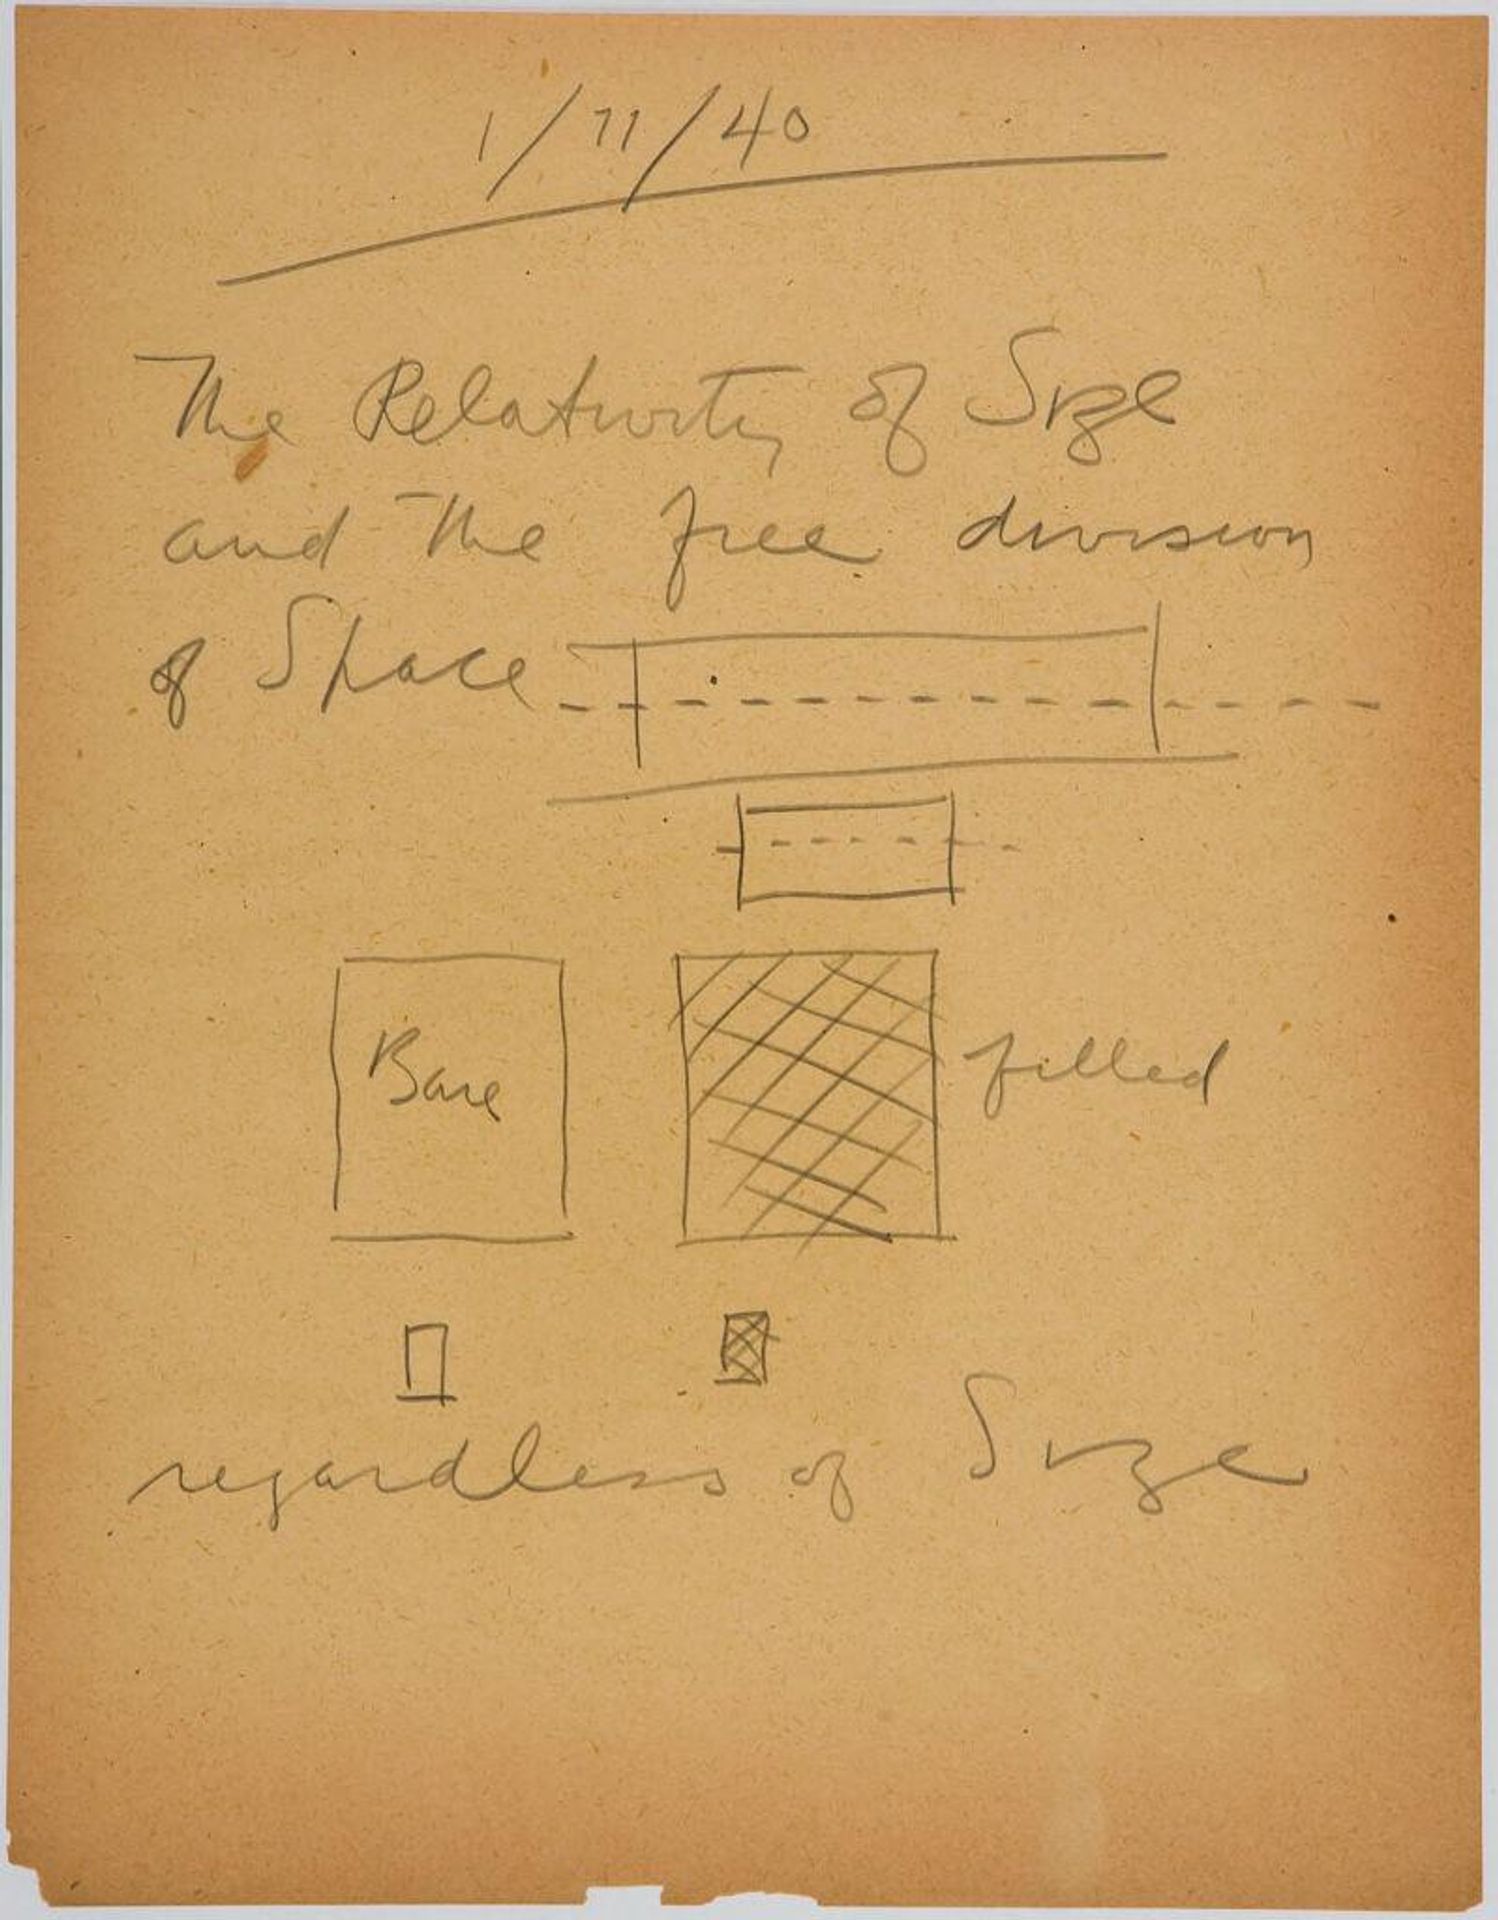 1/11/40
The Relativity of Size
and the free division
of Space
Bare
filled
regardless of Size